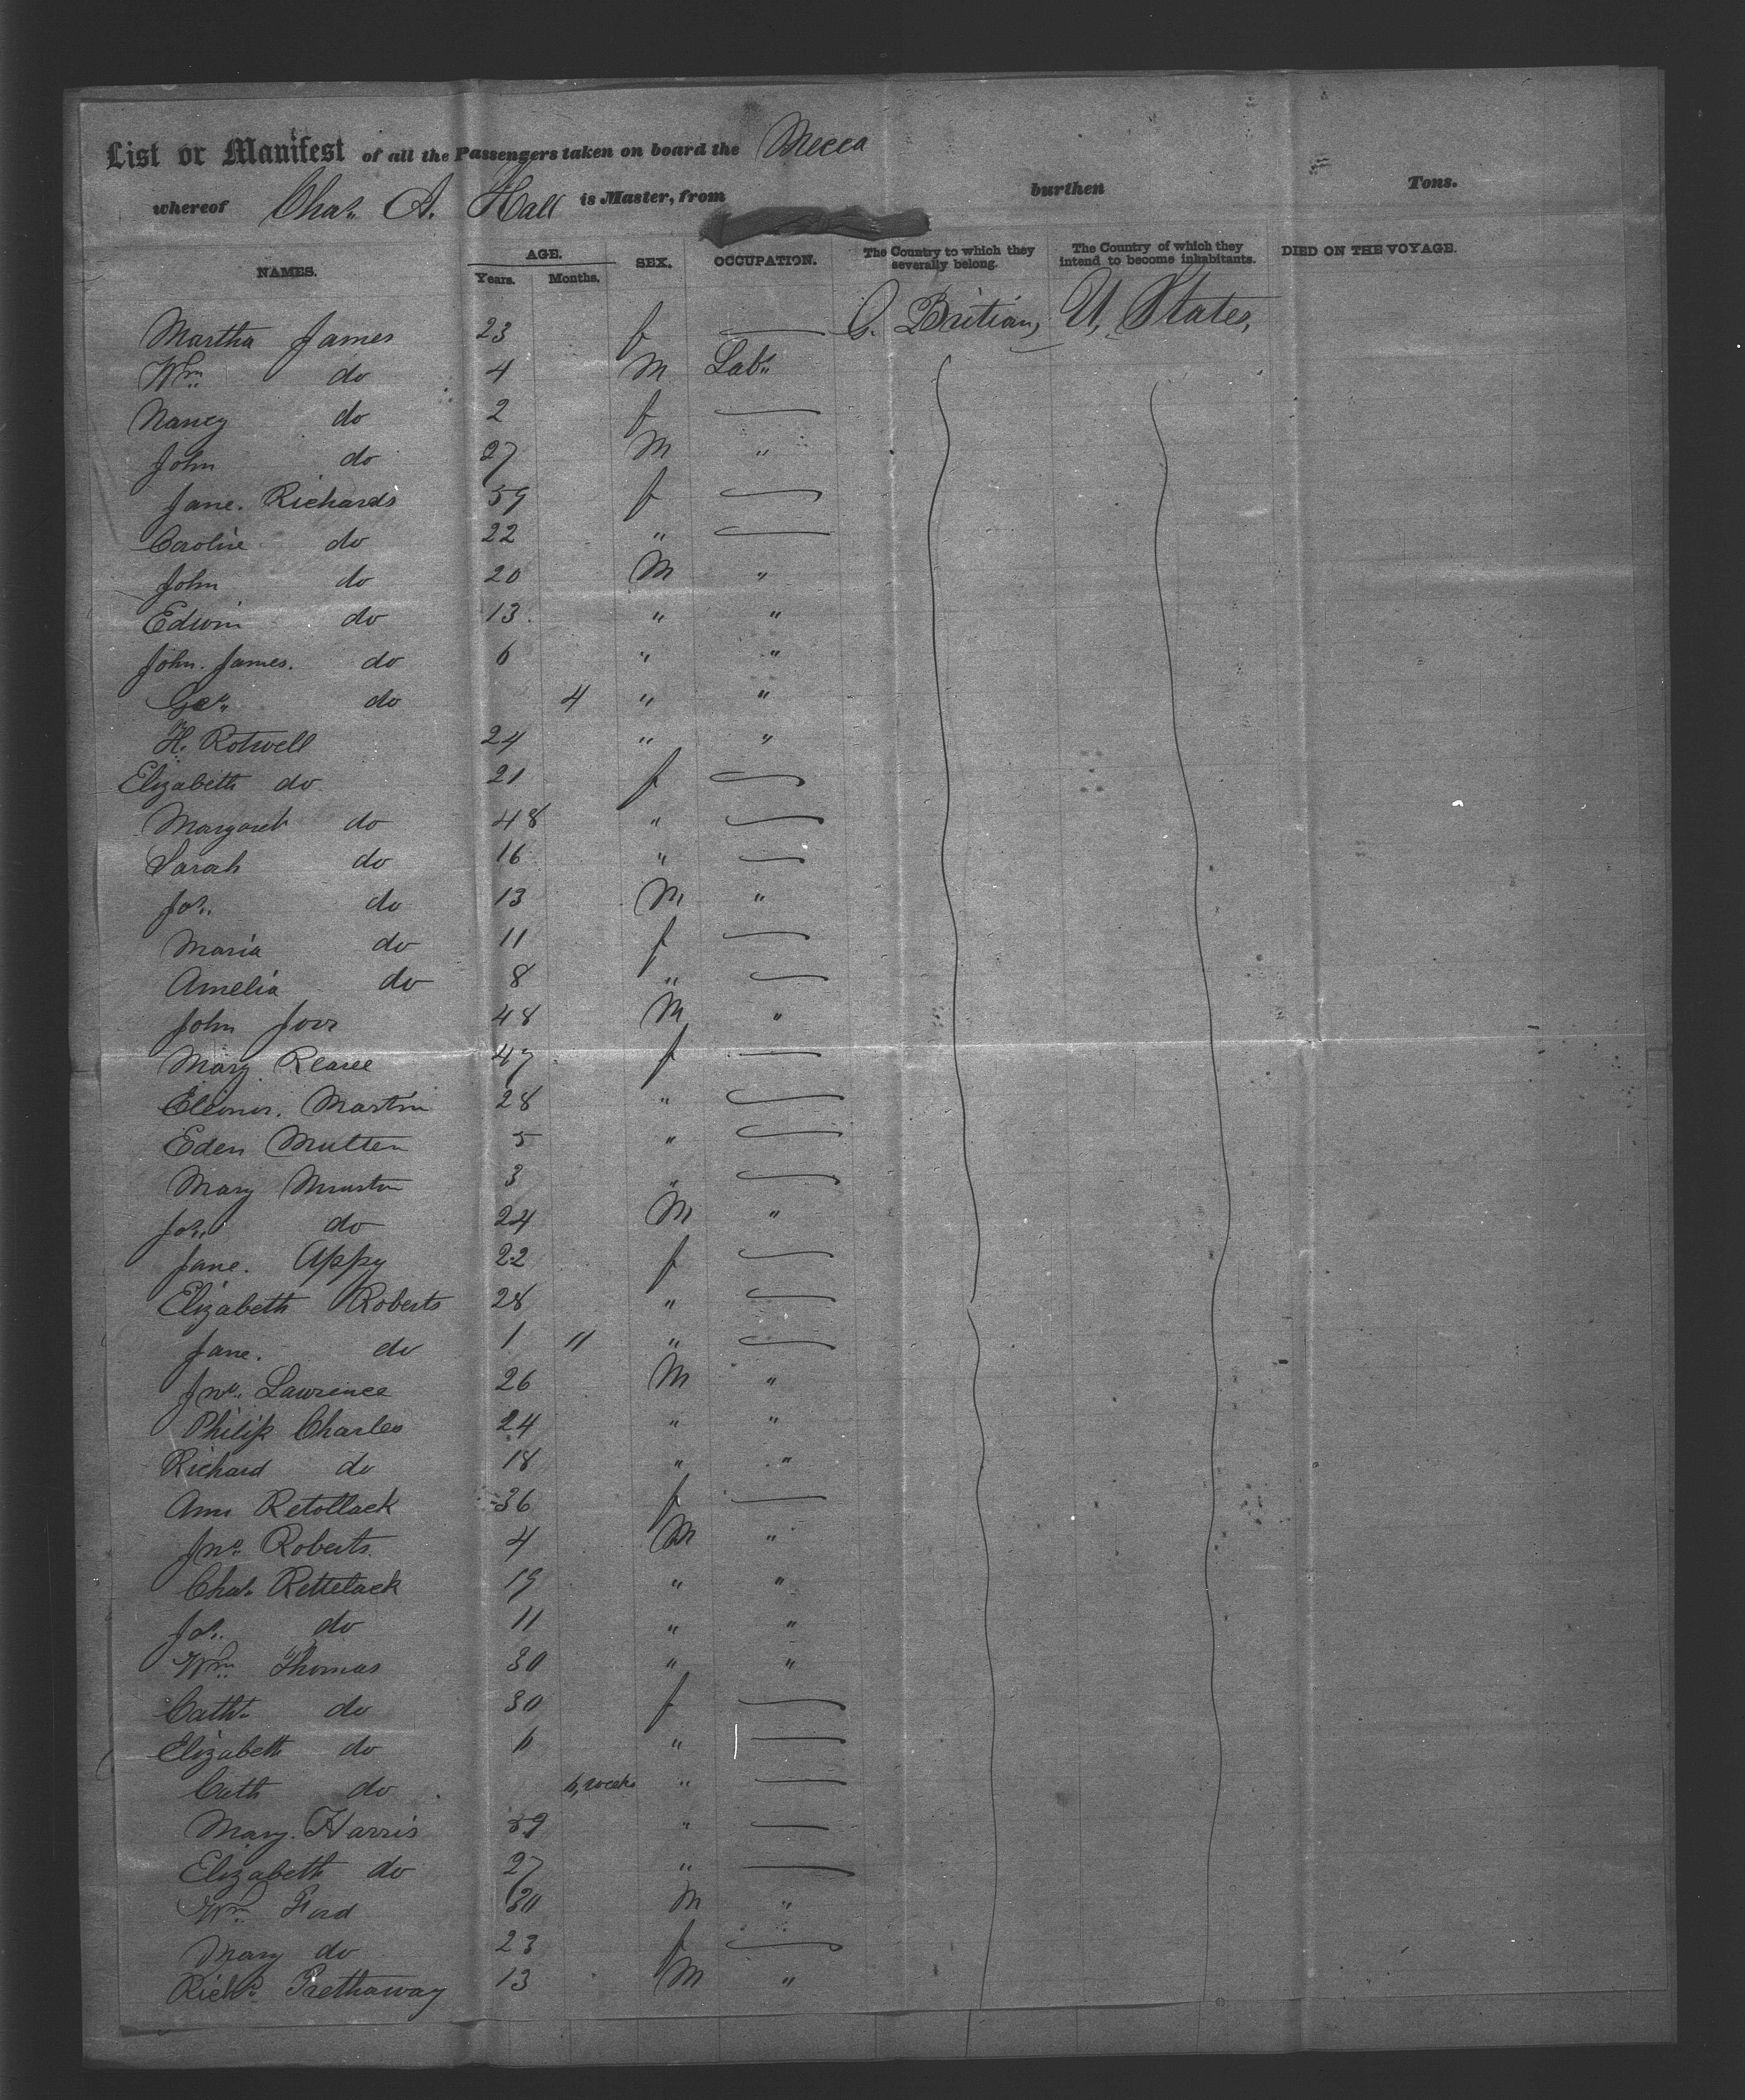 List or Manifest of all the Passengers taken on board the Mecca
whereof Chas. A. Hall is Master, from burthen Tons.
NAMES. AGE. Years. Months. SEX. OCCUPATION. The Country to which they severally belong. The Country of which they intend to become inhabitants. DIED ON THE VOYAGE.
Martha James 23 f — G. Britian, U, States,
Wm do 4 M Labr
Nancy do 2 f —
John do 27 M "
Jane. Richards 59 f —
Caroline do 22 " —
John do 20 M "
Edwin do 13 " "
John. James. do 6 " "
Geo. do 4 " "
H. Rotwell 24 " "
Elizabeth do 21 f —
Margaret do 48 " —
Sarah do 16 " —
Jos. do 13 M "
Maria do 11 f —
Amelia do 8 " —
John 48 M "
Mary 47 f —
Martin 28 " —
Eden Multen 5 " —
Mary 3 " —
Jos. do 24 M "
Jane. Appy 22 f —
Elizabeth Roberts 28 " —
Jane. do 1 11 " —
Jno. Lawrence 26 M "
Philip Charles 24 " "
Richard do 18 " "
Ann Retollack 36 f —
Jno. Roberts. 4 M "
Chas. Rettelack 19 " "
Jos. do 11 " "
Wm Thomas 30 " "
Cath. do 30 f —
Elizabeth do 6 " —
Cath do 6, weeks " —
Mary. Harris 59 " —
Elizabeth do 27 " —
Wm Ford 30 M "
Mary do 23 f —
Richd. Prethaway 13 M "